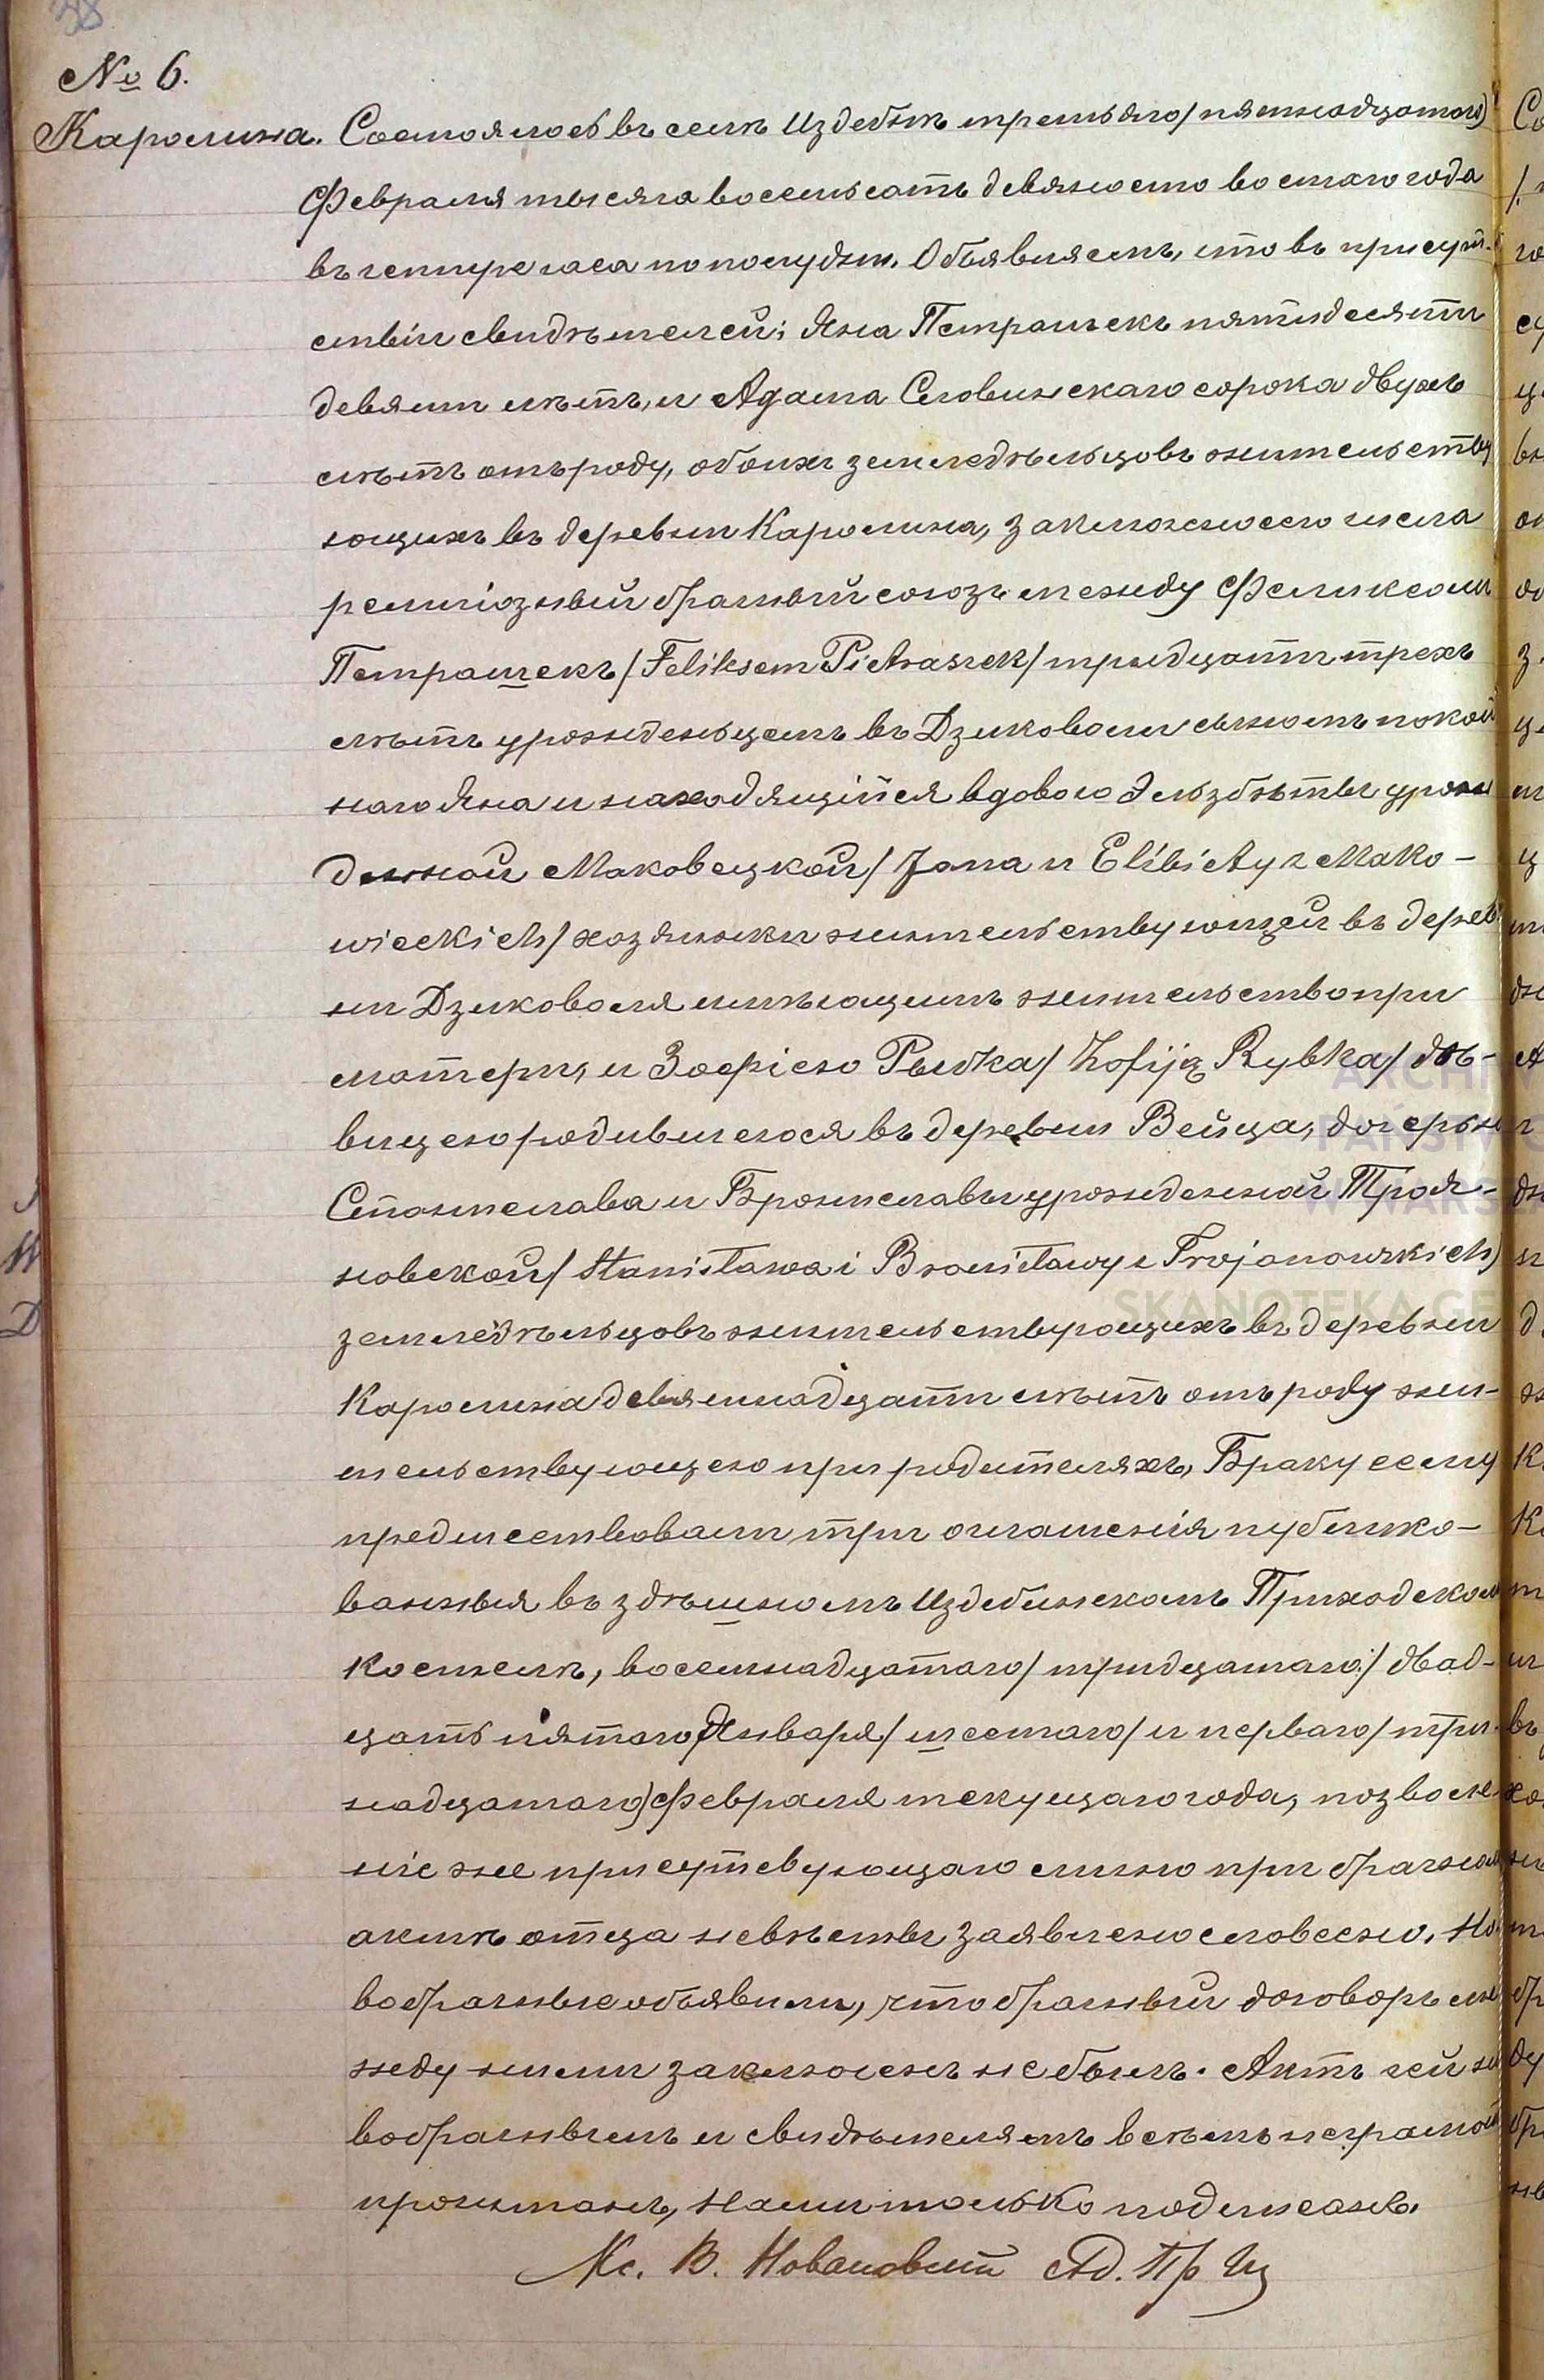 38
№ 6.
Каролина. Состоялось въ селѣ Издебнѣ третьяго /пятнадцатаго/
Февраля тысяча восемьсотъ девяносто восьмаго года
въ четыре часа пополудни. Объявляемъ, что въ присут-
ствіи свидѣтелей: Яна Петрашекъ пятидесяти
девяти лѣтъ, и Адама Словинскаго сорока двухъ
лѣтъ отъ роду, обоихъ земледѣльцовъ жительству
ющихъ въ деревни Каролина, заключено сего числа
религіозный брачный союзъ между Феликсомъ
Петрашекъ /Feliksem Pietraszek/ тридцати трехъ
лѣтъ урожденцемъ въ Дзиковоли сыномъ покой
наго Яна и находящійся вдовою Эльзбѣты урож
денной Маковецкой /Jana и Elibiety z Mako-
wieckich/ хозяйки жительствующей въ дерев
ни Дзиковоля имѣющимъ жительство при
матери, и Зофіею Рыбка /Zofiją Rybka/ дѣ-
вицею родившегося въ деревни Вейца, дочерью
Станислава и Брониславы урожденной Троя-
новской /Stanisława i Bronisławy z Trojanowskich/
земледѣльцовъ жительствующихъ въ деревни
Каролина девятнадцати лѣтъ отъ роду жи-
тельствующею при родителяхъ, Браку сему
предшествовали три оглашенія публико-
ванныя въ здѣшномъ Издебинскомъ Приходскомъ
костелѣ, восемнадцатаго /тридцатаго/ двад-
цать пятаго Января /шестаго/ и перваго /три-
надцатаго/ Февраля текущаго года, позволе-
ніе же присутсвующаго лично при брачномъ
актѣ отца невѣсты заявлено словесно. Но
вобрачные объявили, что брачный договоръ ме
жду ними заключенъ не былъ. Актъ сей но
вобрачнымъ и свидѣтелямъ всѣмъ неграмот
прочитанъ, Нами только подписанъ.
Кс. В. Новаковскій Ад. Пр Из
ARCHIW
PAŃSTWO
W WARSZA
SKANOTEKA GE